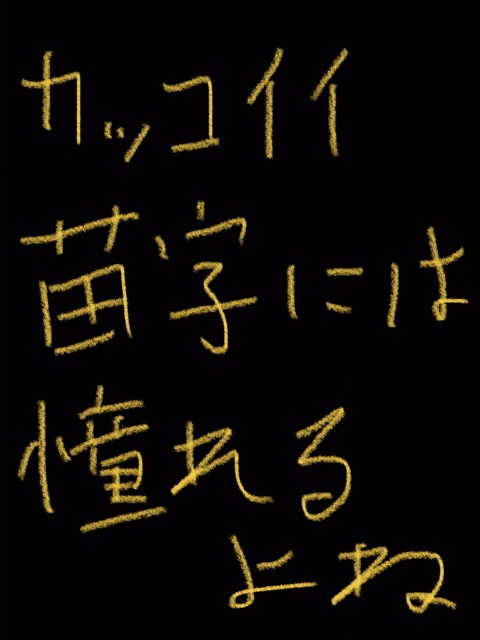 カッコイイ
苗字には
憧れる
よね